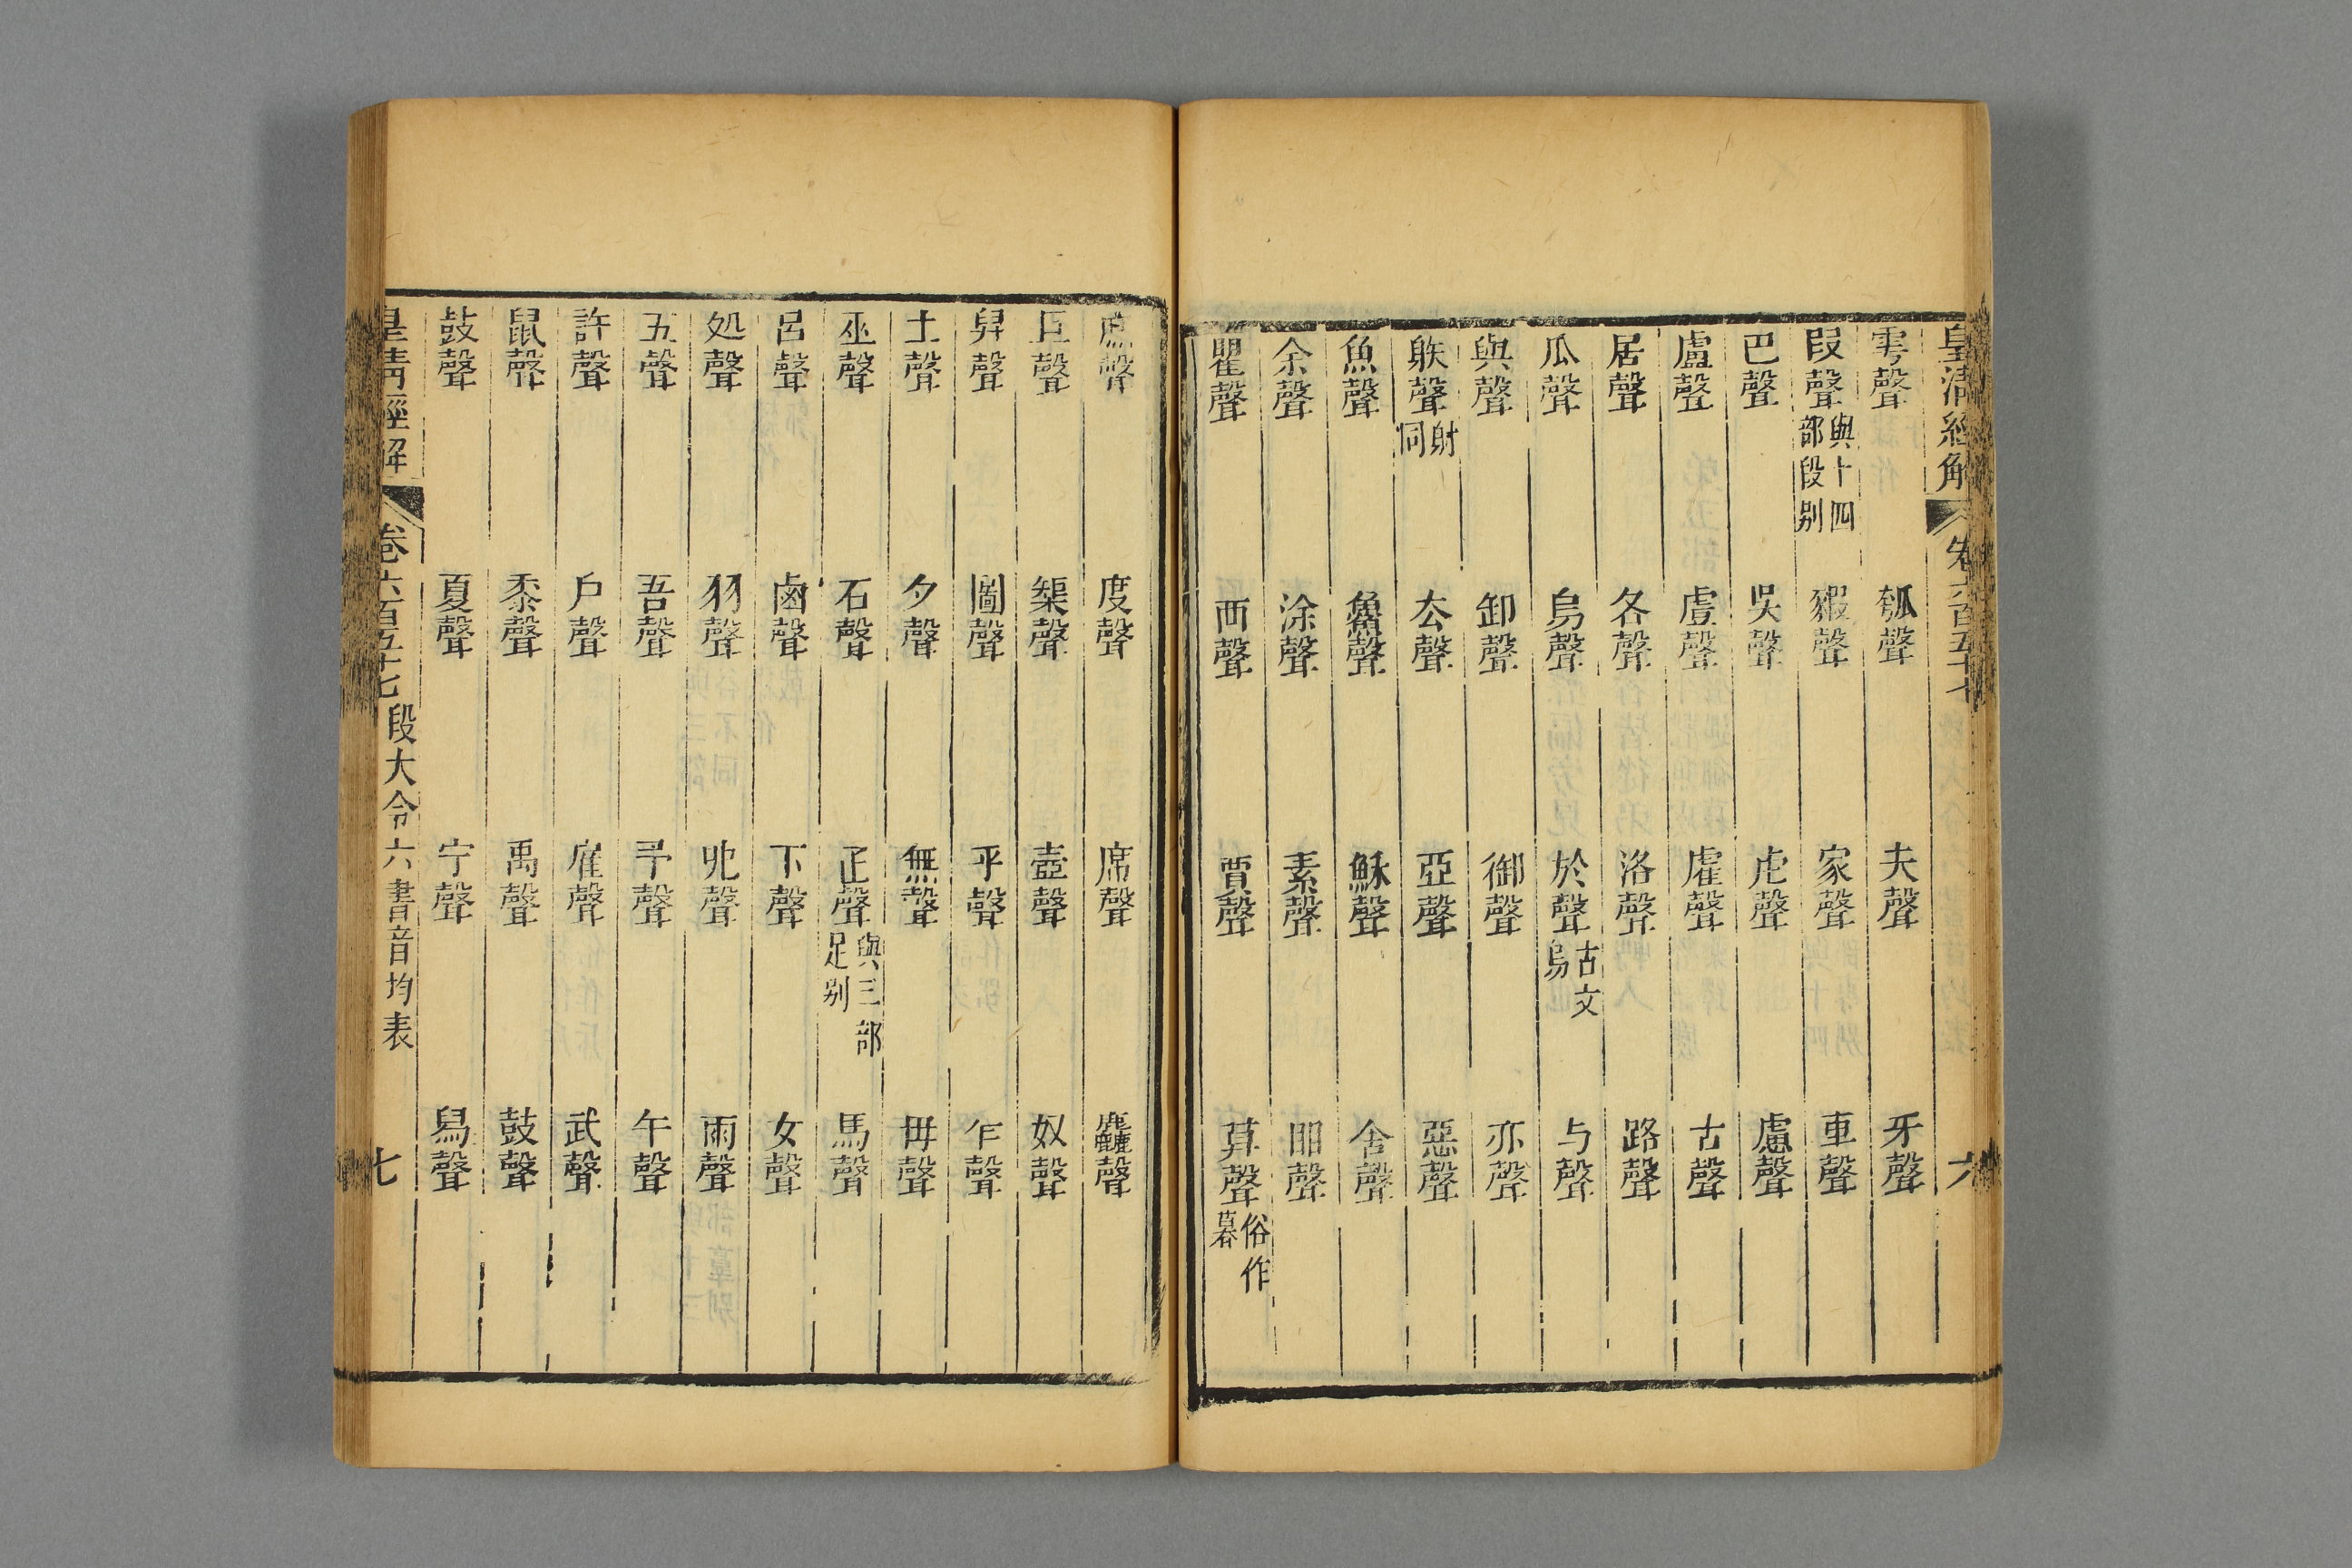 皇清經解 卷六百五十七 六
雩聲 瓠聲 夫聲 牙聲
叚聲與十四部段别 豭聲 家聲 車聲
巴聲 吳聲 虍聲 慮聲
盧聲 虘聲 虖聲 古聲
居聲 各聲 洛聲 路聲
瓜聲 烏聲 於聲古文烏 与聲
與聲 卸聲 御聲 亦聲
躲聲射同 夳聲 亞聲 惡聲
魚聲 䲣聲 穌聲 舍聲
余聲 涂聲 素聲 䀠聲
瞿聲 襾聲 賈聲 莫聲俗作暮
庶聲 度聲 席聲 麤聲
巨聲 榘聲 壺聲 奴聲
舁聲 圖聲 乎聲 乍聲
土聲 夕聲 無聲 毋聲
巫聲 石聲 疋聲與三部足别 馬聲
呂聲 鹵聲 下聲 女聲
処聲 羽聲 兆聲 雨聲
五聲 吾聲 予聲 午聲
許聲 戸聲 雇聲 武聲
鼠聲 黍聲 禹聲 鼓聲
鼓聲 夏聲 宁聲 舄聲
皇清經解 卷六百五十七 段大令六書音均表 七